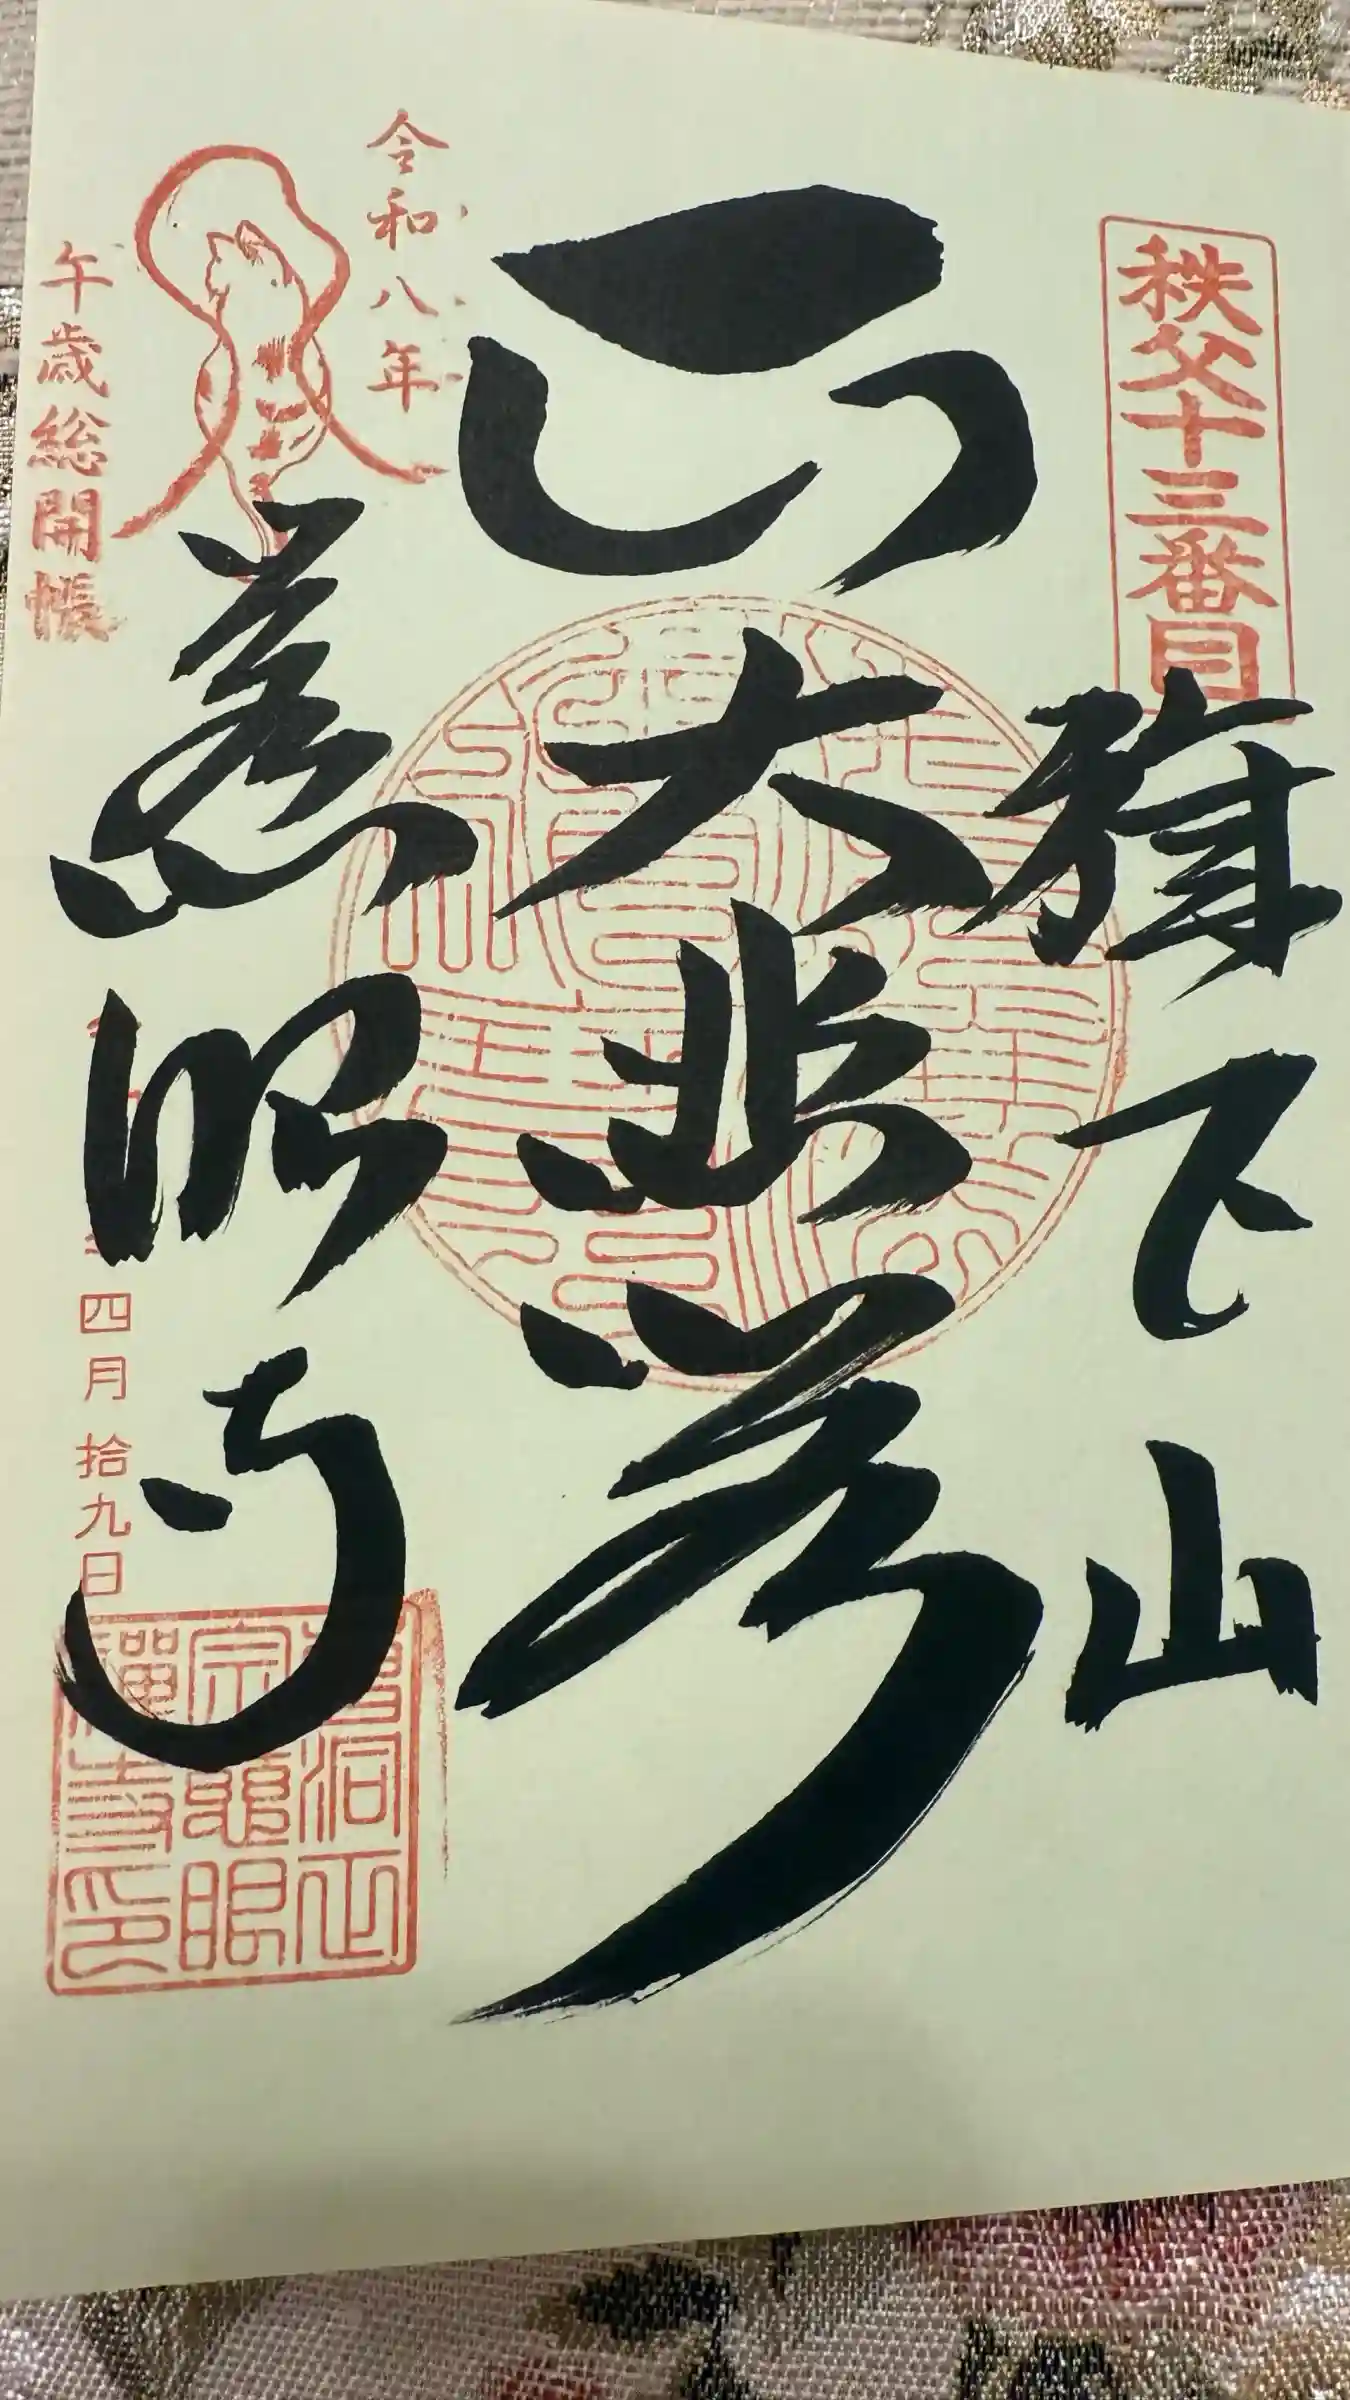 秩父十三番目
旗下山
大悲
令和八年
午歳総開帳
慈眼寺
四月拾九日
曹洞正
宗慈眼
禪寺印